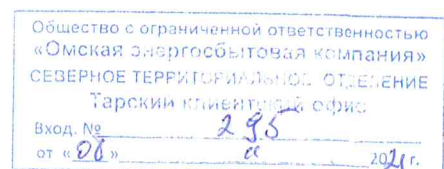 Общество с ограниченной ответственностью
«Омская энергосбытовая компания»
СЕВЕРНОЕ ТЕРРИТОРИАЛЬНОЕ ОТДЕЛЕНИЕ
Тарский клиентский офис
Вход. № 295
от «06» 2021 г.